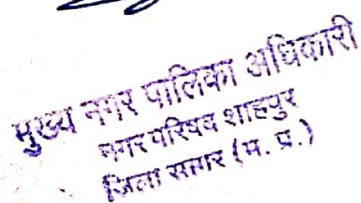 मुख्य नगर पालिका अधिकारी
नगर परिषद शाहपुर
जिला सागर (म. प्र.)